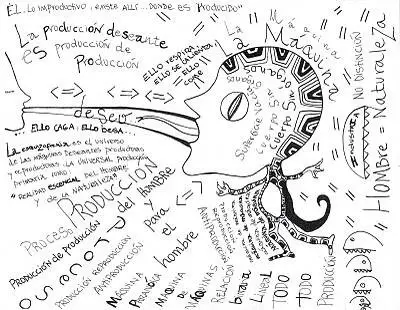 ÉL.. LO IMPRODUCTIVO, EXISTE ALLÍ ... DONDE ES PRODUCIDO"
La producción deseante
ES PRODUCCIÓN DE
PRODUCCIÓN
ELLO RESPIRA
ELLO SE CALIENTA
ELLO COME
<=> <=> <=>
deseo
ELLO CAGA : ELLO BESA...
LA ESQUIZOFRENIA ES EL UNIVERSO
DE LAS MÁQUINAS DESEANTES PRODUCTORAS
Y REPRODUCTORAS LA UNIVERSAL PRODUCCIÓN
PRIMARIA COMO:
"REALIDAD ESENCIAL DEL HOMBRE
Y DE LA NATURALEZA"
La Máquina
La Máquina
órganos
Cuerpo Sin
Cuerpo Sin
NO DISTINCIÓN
INDUSTRIA
"HOMBRE = NATURALEZA
PROCESO PRODUCCIÓN
del Hombre
y
Para
el
hombre
PRODUCCIÓN DE PRODUCCIÓN
PRODUCCIÓN REPRODUCCIÓN
ANTIPRODUCCIÓN
ANTIPRODUCCIÓN
MÁQUINA
PARANOÍCA
MÁQUINA
DE
MÁQUINAS
RELACIÓN
binaria
LINEAL
TODO
TODO
PRODUCCIÓN